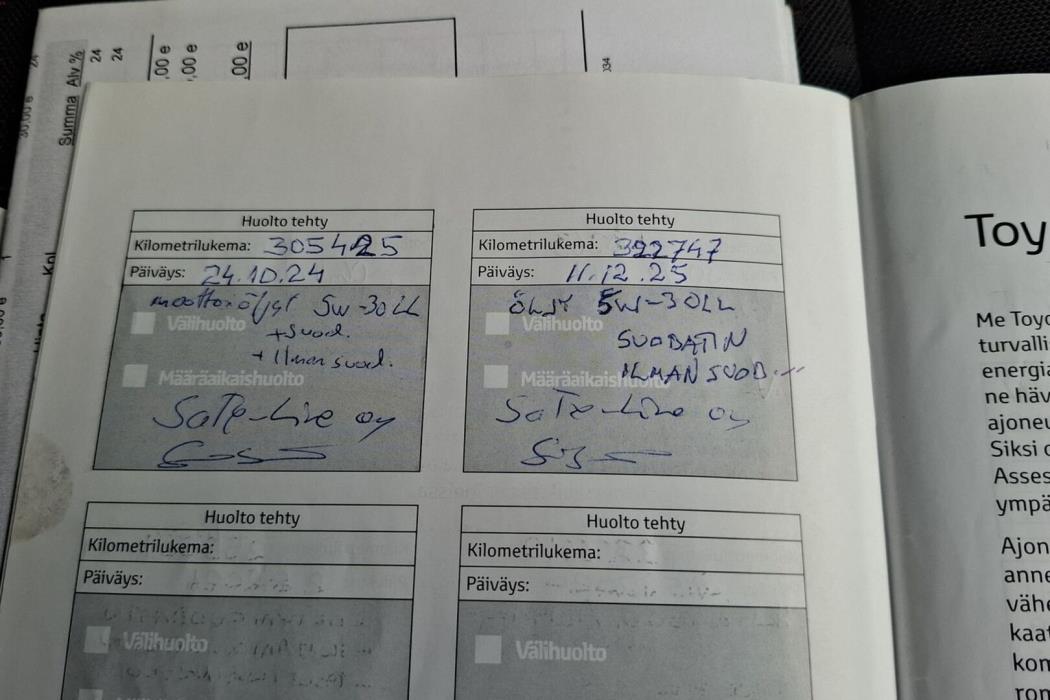 Summa Alv %
24
24
,00 e
,00 e
,00 e
034
30,00 e
Kpl
Huolto tehty
Kilometrilukema: 305425
Päiväys: 24.10.24
moottoriöljyt 5W-30LL
Välihuolto
+Suod.
+Ilman suod.
Määräaikaishuolto
SaTe-Line oy
Huolto tehty
Kilometrilukema: 322747
Päiväys: 11.12.25
ÖLJY 5W-30LL
Välihuolto
SUODATIN
ILMAN SUOD...
Määräaikaishuolto
SaTe-Line oy
Huolto tehty
Kilometrilukema:
Päiväys:
Välihuolto
Huolto tehty
Kilometrilukema:
Päiväys:
Välihuolto
Toy
Me Toyo
turvalli
energia
ne häv
ajoneu
Siksi o
Asses
ympä
Ajon
anne
vähe
kaat
kom